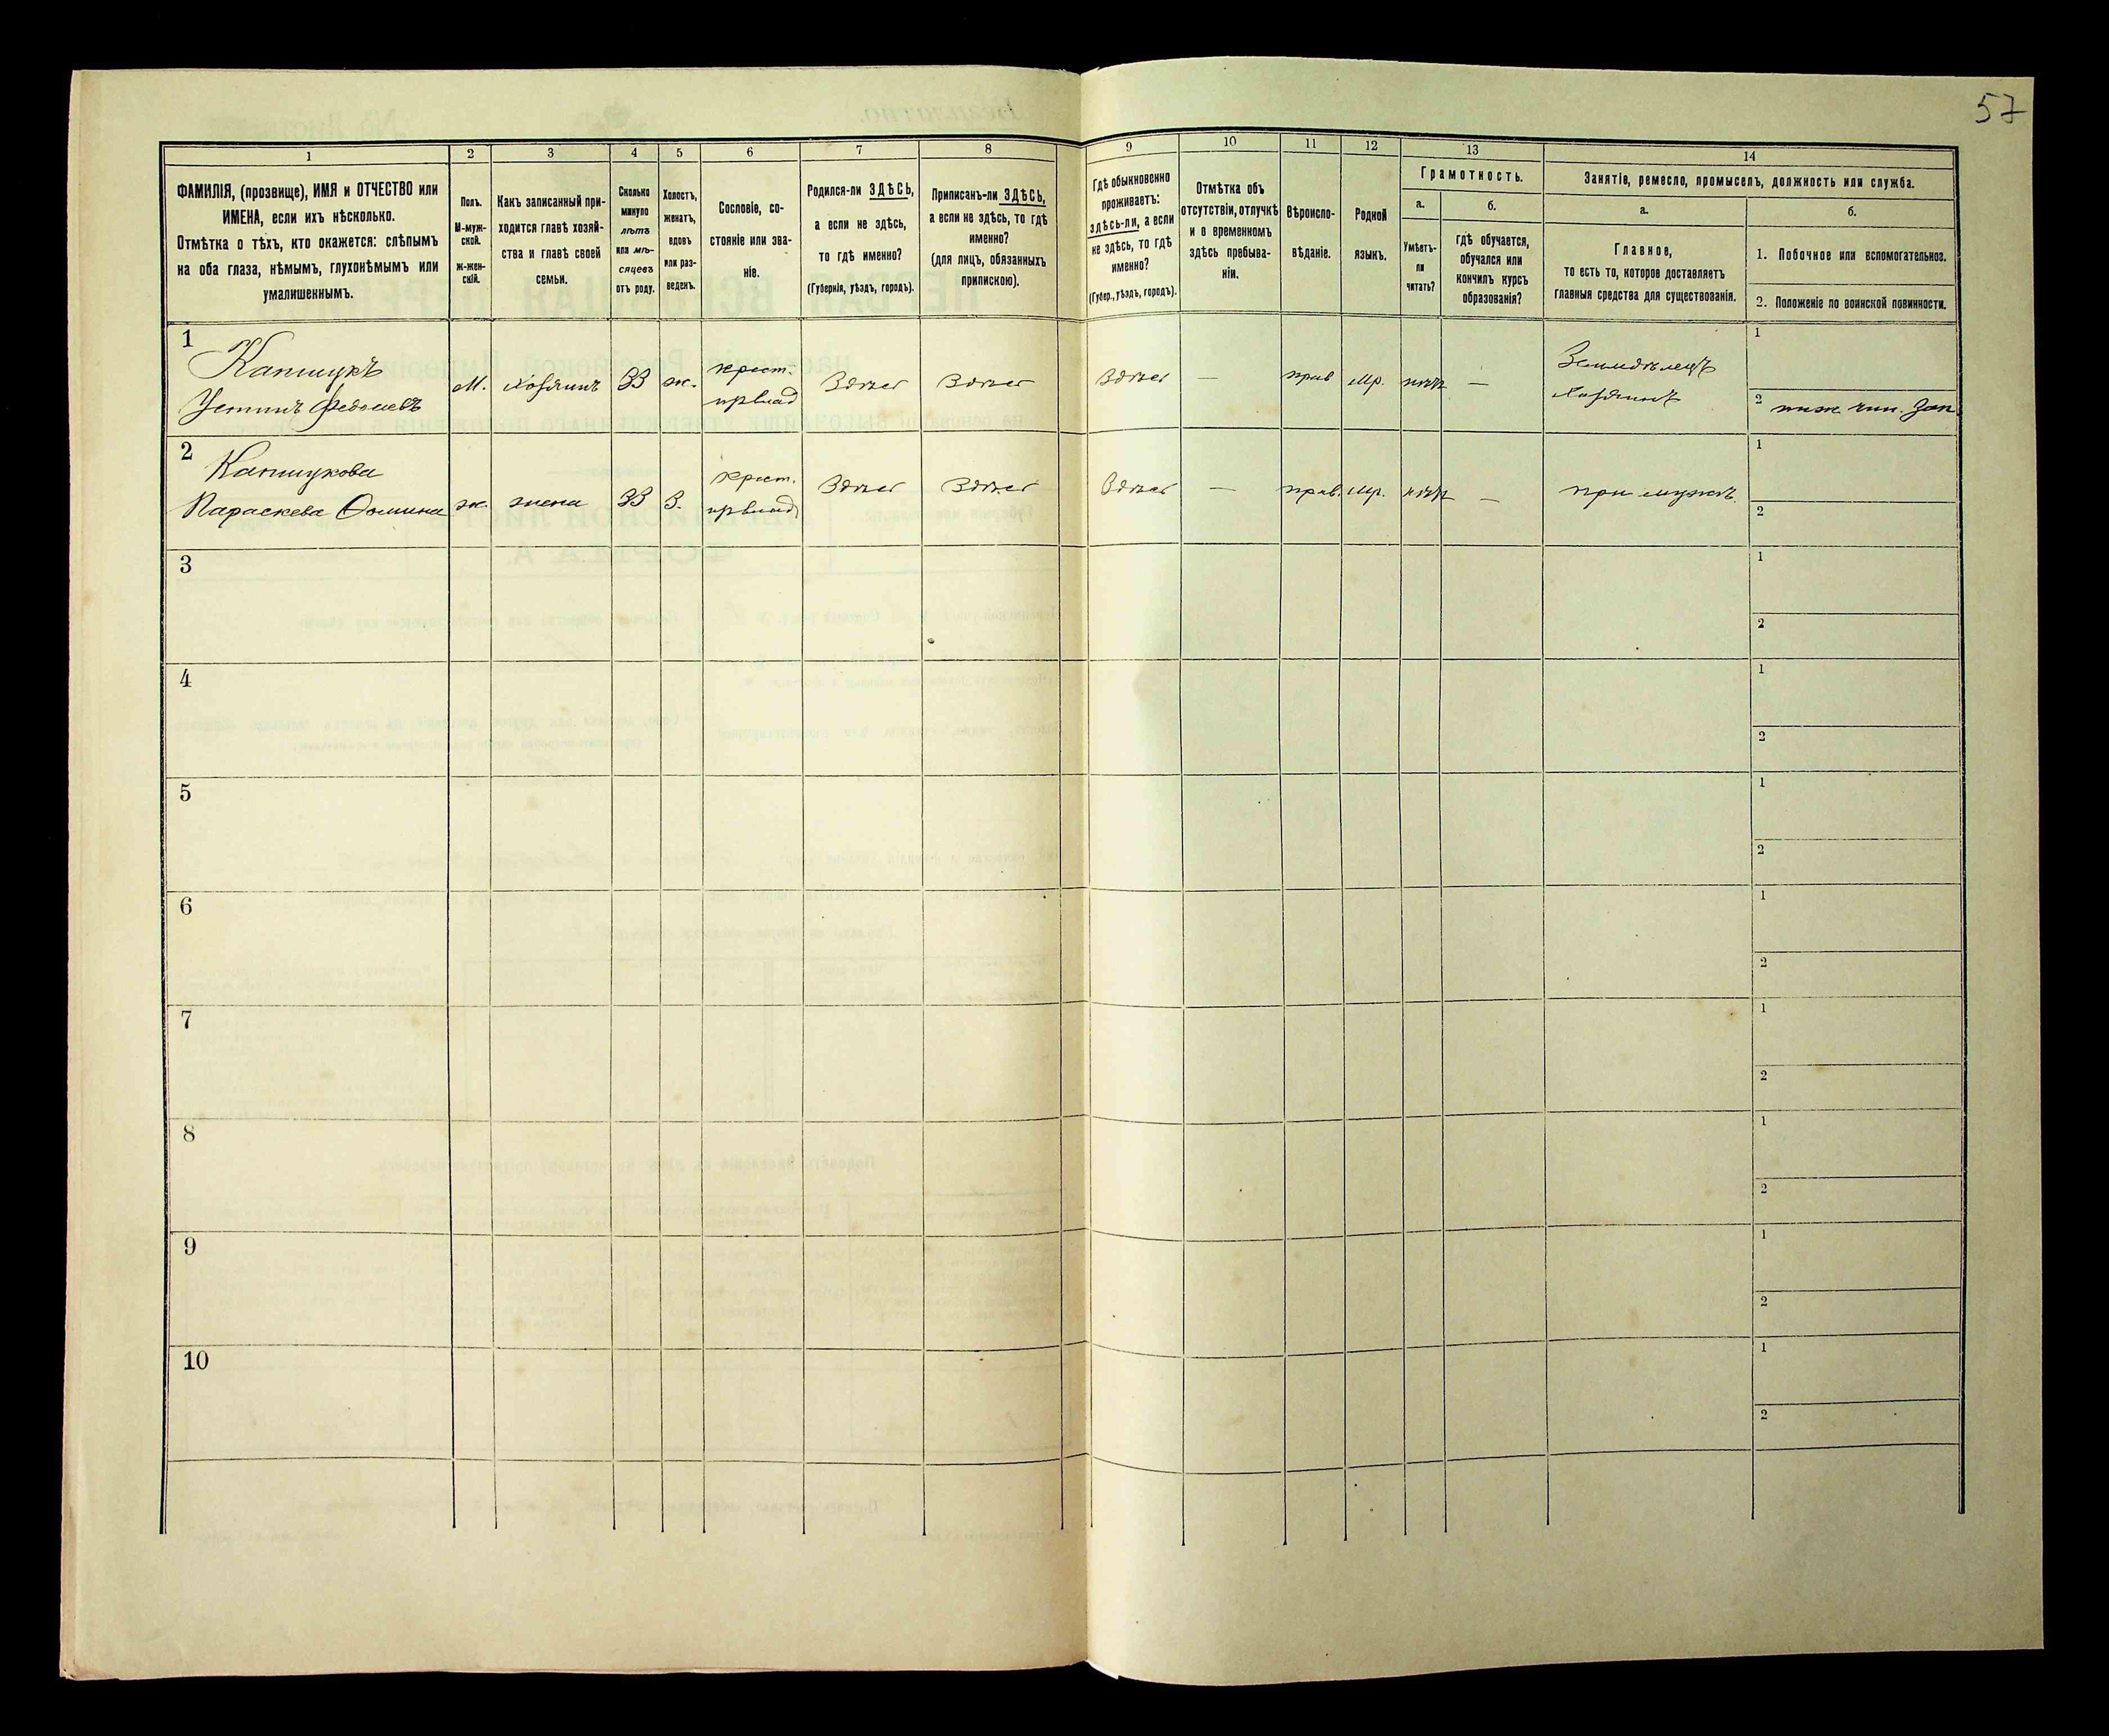 57
1 2 3 4 5 6 7 8 9 10 11 12 13 14
ФАМИЛІЯ, (прозвище), ИМЯ и ОТЧЕСТВО или
ИМЕНА, если ихъ нѣсколько.
Отмѣтка о тѣхъ, кто окажется: слѣпымъ
на оба глаза, нѣмымъ, глухонѣмымъ или
умалишеннымъ.
Полъ.
М-муж-
ской.
ж-жен-
скій.
Какъ записанный при-
ходится главѣ хозяй-
ства и главѣ своей
семьи.
Сколько
минуло
лѣтъ
или мѣ-
сяцевъ
отъ роду.
Холостъ,
женатъ,
вдовъ
или раз-
веденъ.
Сословіе, со-
стояніе или зва-
ніе.
Родился-ли ЗДѢСЬ,
а если не здѣсь,
то гдѣ именно?
(Губернія, уѣздъ, городъ).
Приписанъ-ли ЗДѢСЬ,
а если не здѣсь, то гдѣ
именно?
(для лицъ, обязанныхъ
припискою).
Гдѣ обыкновенно
проживаетъ:
здѣсь-ли, а если
не здѣсь, то гдѣ
именно?
(Губер., уѣздъ, городъ).
Отмѣтка объ
отсутствіи, отлучкѣ
и о временномъ
здѣсь пребыва-
ніи.
Вѣроиспо-
вѣданіе.
Родной
языкъ.
Грамотность.
а.
Умѣетъ-
ли
читать?
б.
гдѣ обучается,
обучался или
кончилъ курсъ
образованія?
Занятіе, ремесло, промыселъ, должность или служба.
а.
Главное,
то есть то, которое доставляетъ
главныя средства для существованія.
б.
1. Побочное или вспомогательное.
2. Положеніе по воинской повинности.
1
Капшукъ
Устинъ Федоровъ
М.
хозяинъ
33
ж.
крест.
Здѣсь
Здѣсь
Здѣсь
—
прав
мр.
нѣтъ
—
Земледѣлецъ
хозяинъ
1
2 ниж. чин. Зап
2
Капшукова
Параскева Фомина
ж.
жена
33
З.
крест.
Здѣсь
Здѣсь
Здѣсь
—
прав.
мр.
нѣтъ
—
при мужѣ
1
2
3
1
2
4
1
2
5
1
2
6
1
2
7
1
2
8
1
2
9
1
2
10
1
2